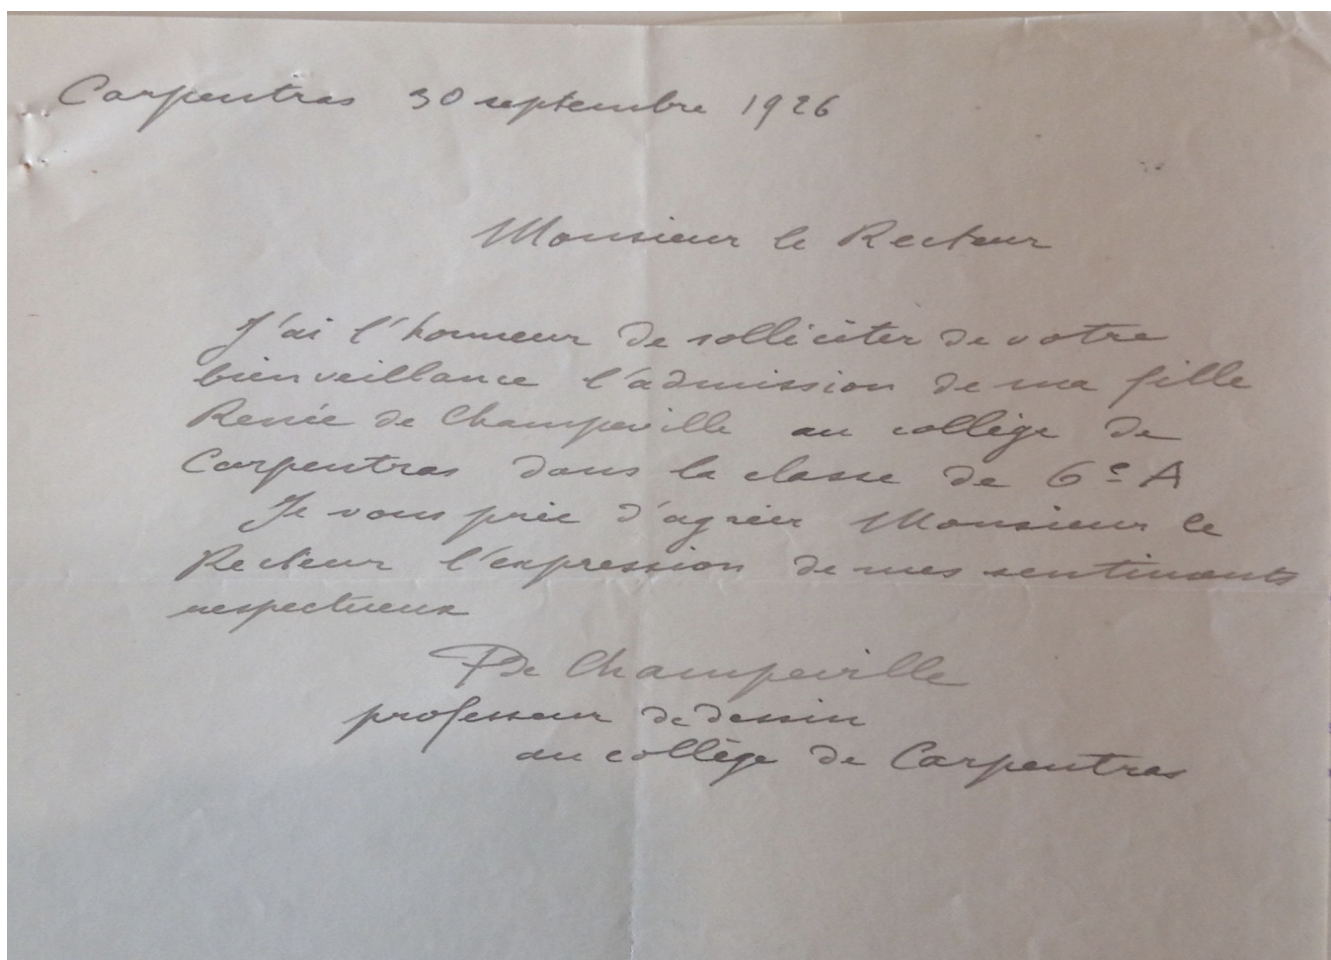 Carpentras 30 septembre 1926
Monsieur le Recteur
J'ai l'honneur de solliciter de votre
bienveillance l'admission de ma fille
Renée de Champeville au collège de
Carpentras dans la classe de 6e A
Je vous prie d'agréer Monsieur le
Recteur l'expression de mes sentiments
respectueux
P de Champeville
professeur de dessin
au collège de Carpentras